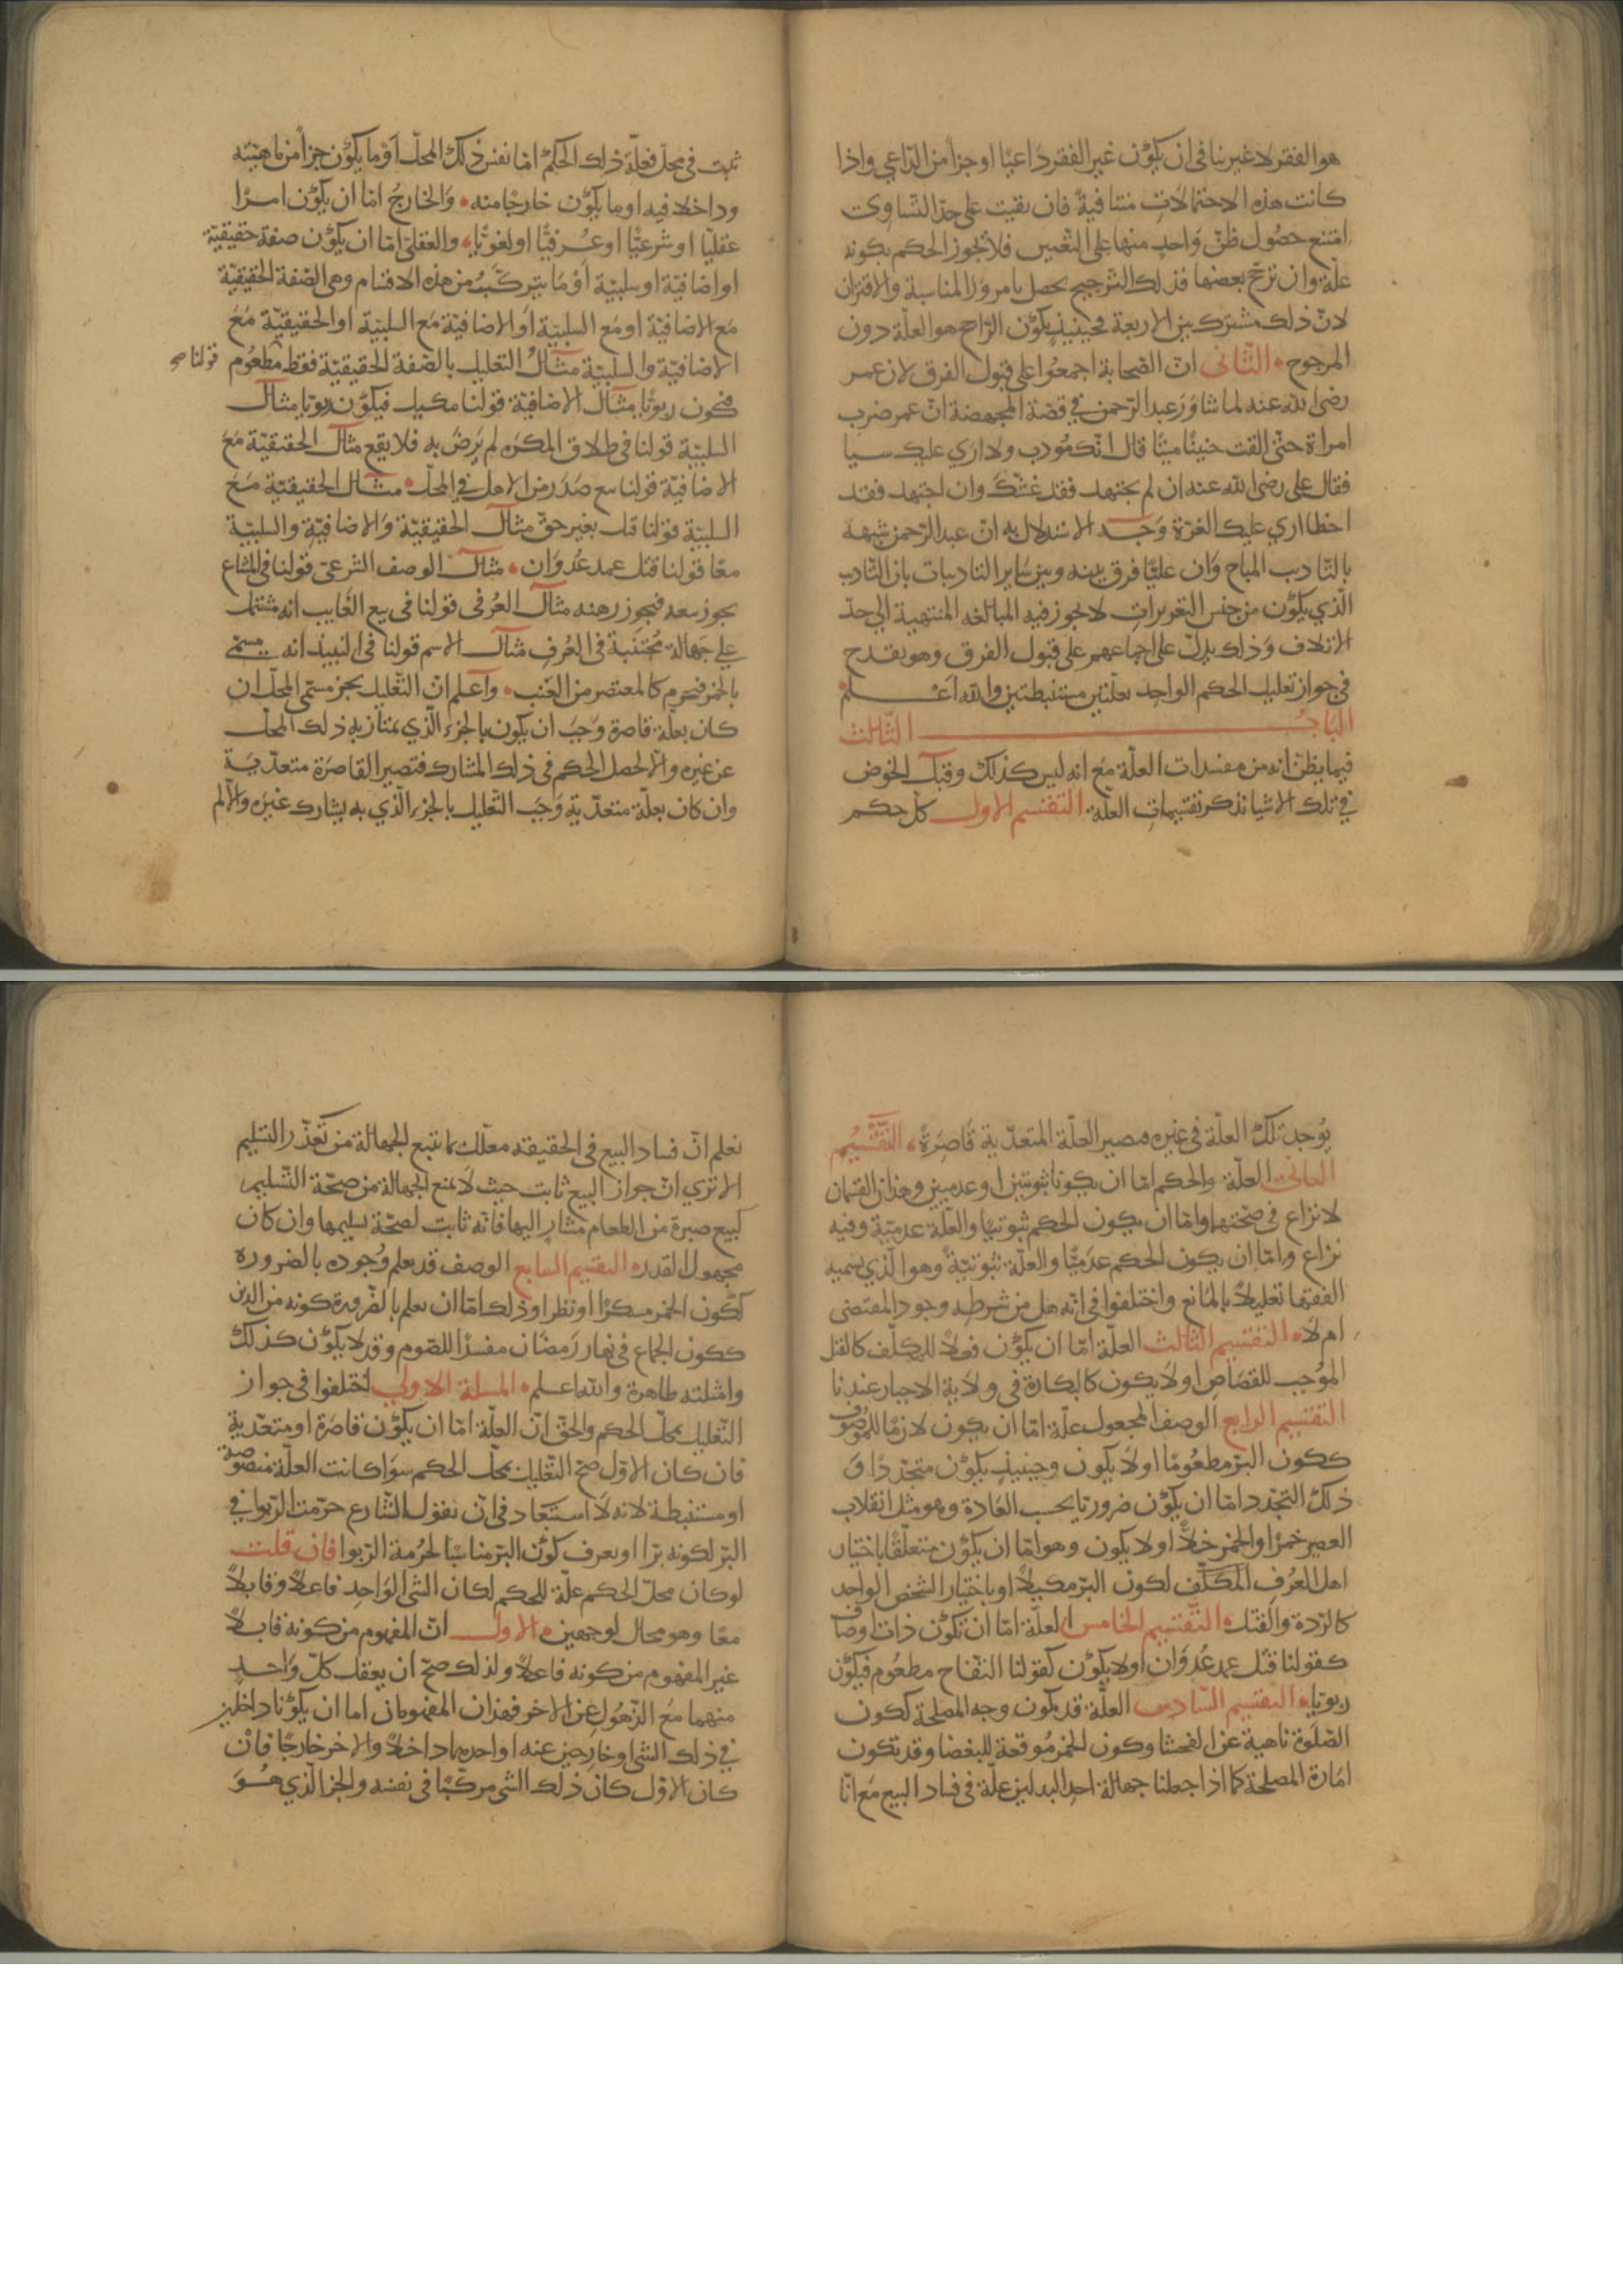 هو الفقر لا غير ينافى ان يكون غير الفقر داعيًا او جزأ من الداعي واذا
كانت هذه الاحتمالات متنافية فان بقيت على حد التساوى
امتنع حصول ظن واحد منها على التعيين فلا يجوز الحكم بكونه
علة وان ترجح بعضها فذلك الترجيح يحصل بامر ورا المناسبة والاقتران
لان ذلك مشترك بين الاربعة فحينيذ يكون الراجح هو العلة دون
المرجوح الثانى ان الصحابة اجمعوا على قبول الفرق لان عمر
رضى الله عنه لما شاور عبد الرحمن في قضة المجهضة ان عمر ضرب
امراة حتى القت جنينًا ميتًا قال انك مودب ولا ارى عليك سيا
فقال على رضى الله عنه ان لم يجتهد فقد غشك وان اجتهد فقد
اخطا اري عليك الغرة وجه الاستدلال به ان عبد الرحمن شبهه
بالتاديب المباح وان عليًّا فرق بينه وبين ساير التاديبات بان التاديب
الذي يكون من جنس التعزيرات لا يجوز فيه المبالغه المنتهية الى حد
الاتلاف وذلك يدل على اجماعهم على قبول الفرق وهو يقدح
فى جواز تعليل الحكم الواحد بعلتين مستنبطتين والله اعلم
الباب الثالث
فيما يظن انه من مفسدات العلة مع انه ليس كذلك وقبل الخوض
في تلك الاشيا نذكر تقسيمات العلة التقسيم الاول كل حكم
ثبت فى محل فعلة ذلك الحكم اما نفس ذلك المحل او ما يكون جزأ من ماهيته
وداخلا فيه او ما يكون خارجًا منه والخارج اما ان يكون امرا
عقليًا او شرعيًّا او عرفيًّا او لغويًّا والعقلى اما ان يكون صفة حقيقية
او اضافيّة او سلبيّة او ما يتركب من هذه الاقسام وهى الصفة الحقيقيّة
مع الاضافيّة او مع السلبيّة او الاضافيّة مع السلبيّة او الحقيقيّة مع
الاضافيّة والسلبيّة مثال التعليل بالصفة الحقيقيّة فقط مطعوم
قولنا صح
فيكون ربويًّا مثال الاضافيّة قولنا مكيل فيكون ربويّا مثال
السلبيّة قولنا فى طلاق المكره لم يرض به فلا يقع مثال الحقيقيّة مع
الاضافيّة قولنا بيع صدر من الاهل في المحل مثال الحقيقيّة مع
السلبيّة قولنا قتل بغير حق مثال الحقيقيّة والاضافيّة والسلبيّة
معًا قولنا قتل عمد عدوان مثال الوصف الشرعى قولنا فى المشاع
يجوز بيعه فيجوز رهنه مثال العرفى قولنا فى بيع الغايب انه مشتمل
على جهالة مجتنبة فى العرف مثال الاسم قولنا فى النبيذ انه يسمى
بالخمر فيحرم كالمعتصر من العنب واعلم ان التعليل بجز مسمى المحل ان
كان بعلة قاصرة وجب ان يكون بالجزء الذي يمتاز به ذلك المحل
عن غيره والا لحصل الحكم فى ذلك المشارك فتصير القاصرة متعديّة
وان كان بعلة متعدّية وجب التعليل بالجزء الّذي به يشارك غيره والا لم
يوجد تلك العلة في غيره فتصير العلة المتعدّية قاصرةً التقسيم
الثانى العلة والحكم اما ان يكونا ثبوتيين او عدميين وهذان القسمان
لا نزاع فى صحتهما واما ان يكون الحكم ثبوتيًا والعلة عدميّة وفيه
نزاع واما ان يكون الحكم عدميًّا والعلة ثبوتيّةً وهو الذي يسميه
الفقها تعليلاً بالمانع واختلفوا فى انه هل من شرطه وجود المقتضى
ام لا التقسيم الثالث العلة اما ان يكون فعلاً للمكلف كالقتل
الموجب للقصاص او لا يكون كالبكارة فى ولاية الاجبار عندنا
التقسيم الرابع الوصف المجعول علة اما ان يكون لازمًا للموصوف
ككون البر مطعومًا او لا يكون وحينيذ يكون متجددًا و
ذلك التجدد اما ان يكون ضروريا بحسب العادة وهو مثل انقلاب
العصير خمرًا والخمر خلاًّ او لا يكون وهو اما ان يكون متعلّقًا باختيار
اهل العرف المكلف لكون البر مكيلاً او باختيار الشخص الواحد
كالردة والقتل التقسيم الخامس العلة اما ان تكون ذات اوصاف
كقولنا قتل عمد عدوان او لا يكون كقولنا التفاح مطعوم فيكون
ربويا التقسيم السادس العلة قد يكون وجه المصلحة لكون
الصلوة ناهية عن الفحشا وكون الخمر موقعة للبغضا وقد تكون
امارة المصلحة كما اذا جعلنا جهالة احد البدلين علة فى فساد البيع مع انا
نعلم ان فساد البيع فى الحقيقه معلل بما يتبع الجهالة من تعذر التسليم
الا تري ان جواز البيع ثابت حيث لا يمنع الجهالة من صحة التسليم
كبيع صبرة من الطعام مشار اليها فانه ثابت لصحة تسليمها وان كان
مجهول القدر التقسيم السابع الوصف قد يعلم وجوده بالضروره
لكون الخمر مسكرًا او نظرا وذلك اما ان يعلم بالضرورة كونه من الدين
ككون الجماع فى نهار رمضان مفسدًا للصوم وقد لا يكون كذلك
وامثلته ظاهرة والله اعلم المسلة الاولى اختلفوا فى جواز
التعليل بمحل الحكم والحق ان العلة اما ان يكون قاصرة او متعدّية
فان كان الاول صح التعليل بمحل الحكم سوا كانت العلة منصوصة
او مستنبطة لانه لا استبعاد فى ان نقول الشارع حرمت الربوا في
البر لكونه برّا او يعرف كون البر مناسبا لحرمة الربوا فان قلت
لو كان محل الحكم علة للحكم لكان الشى الواحد فاعلاً وقابلاً
معًا وهو محال لوجهين الاول ان المفهوم من كونه قابلاً
غير المفهوم من كونه فاعلاً ولذلك صح ان يعقل كل واحد
منهما مع الذهول عن الاخر فهذان المفهومان اما ان يكونا داخلين
في ذلك الشى او خارجين عنه او احدهما داخلاً والاخر خارجًا فان
كان الاول كان ذلك الشى مركبًا فى نفسه والجز الذي هو